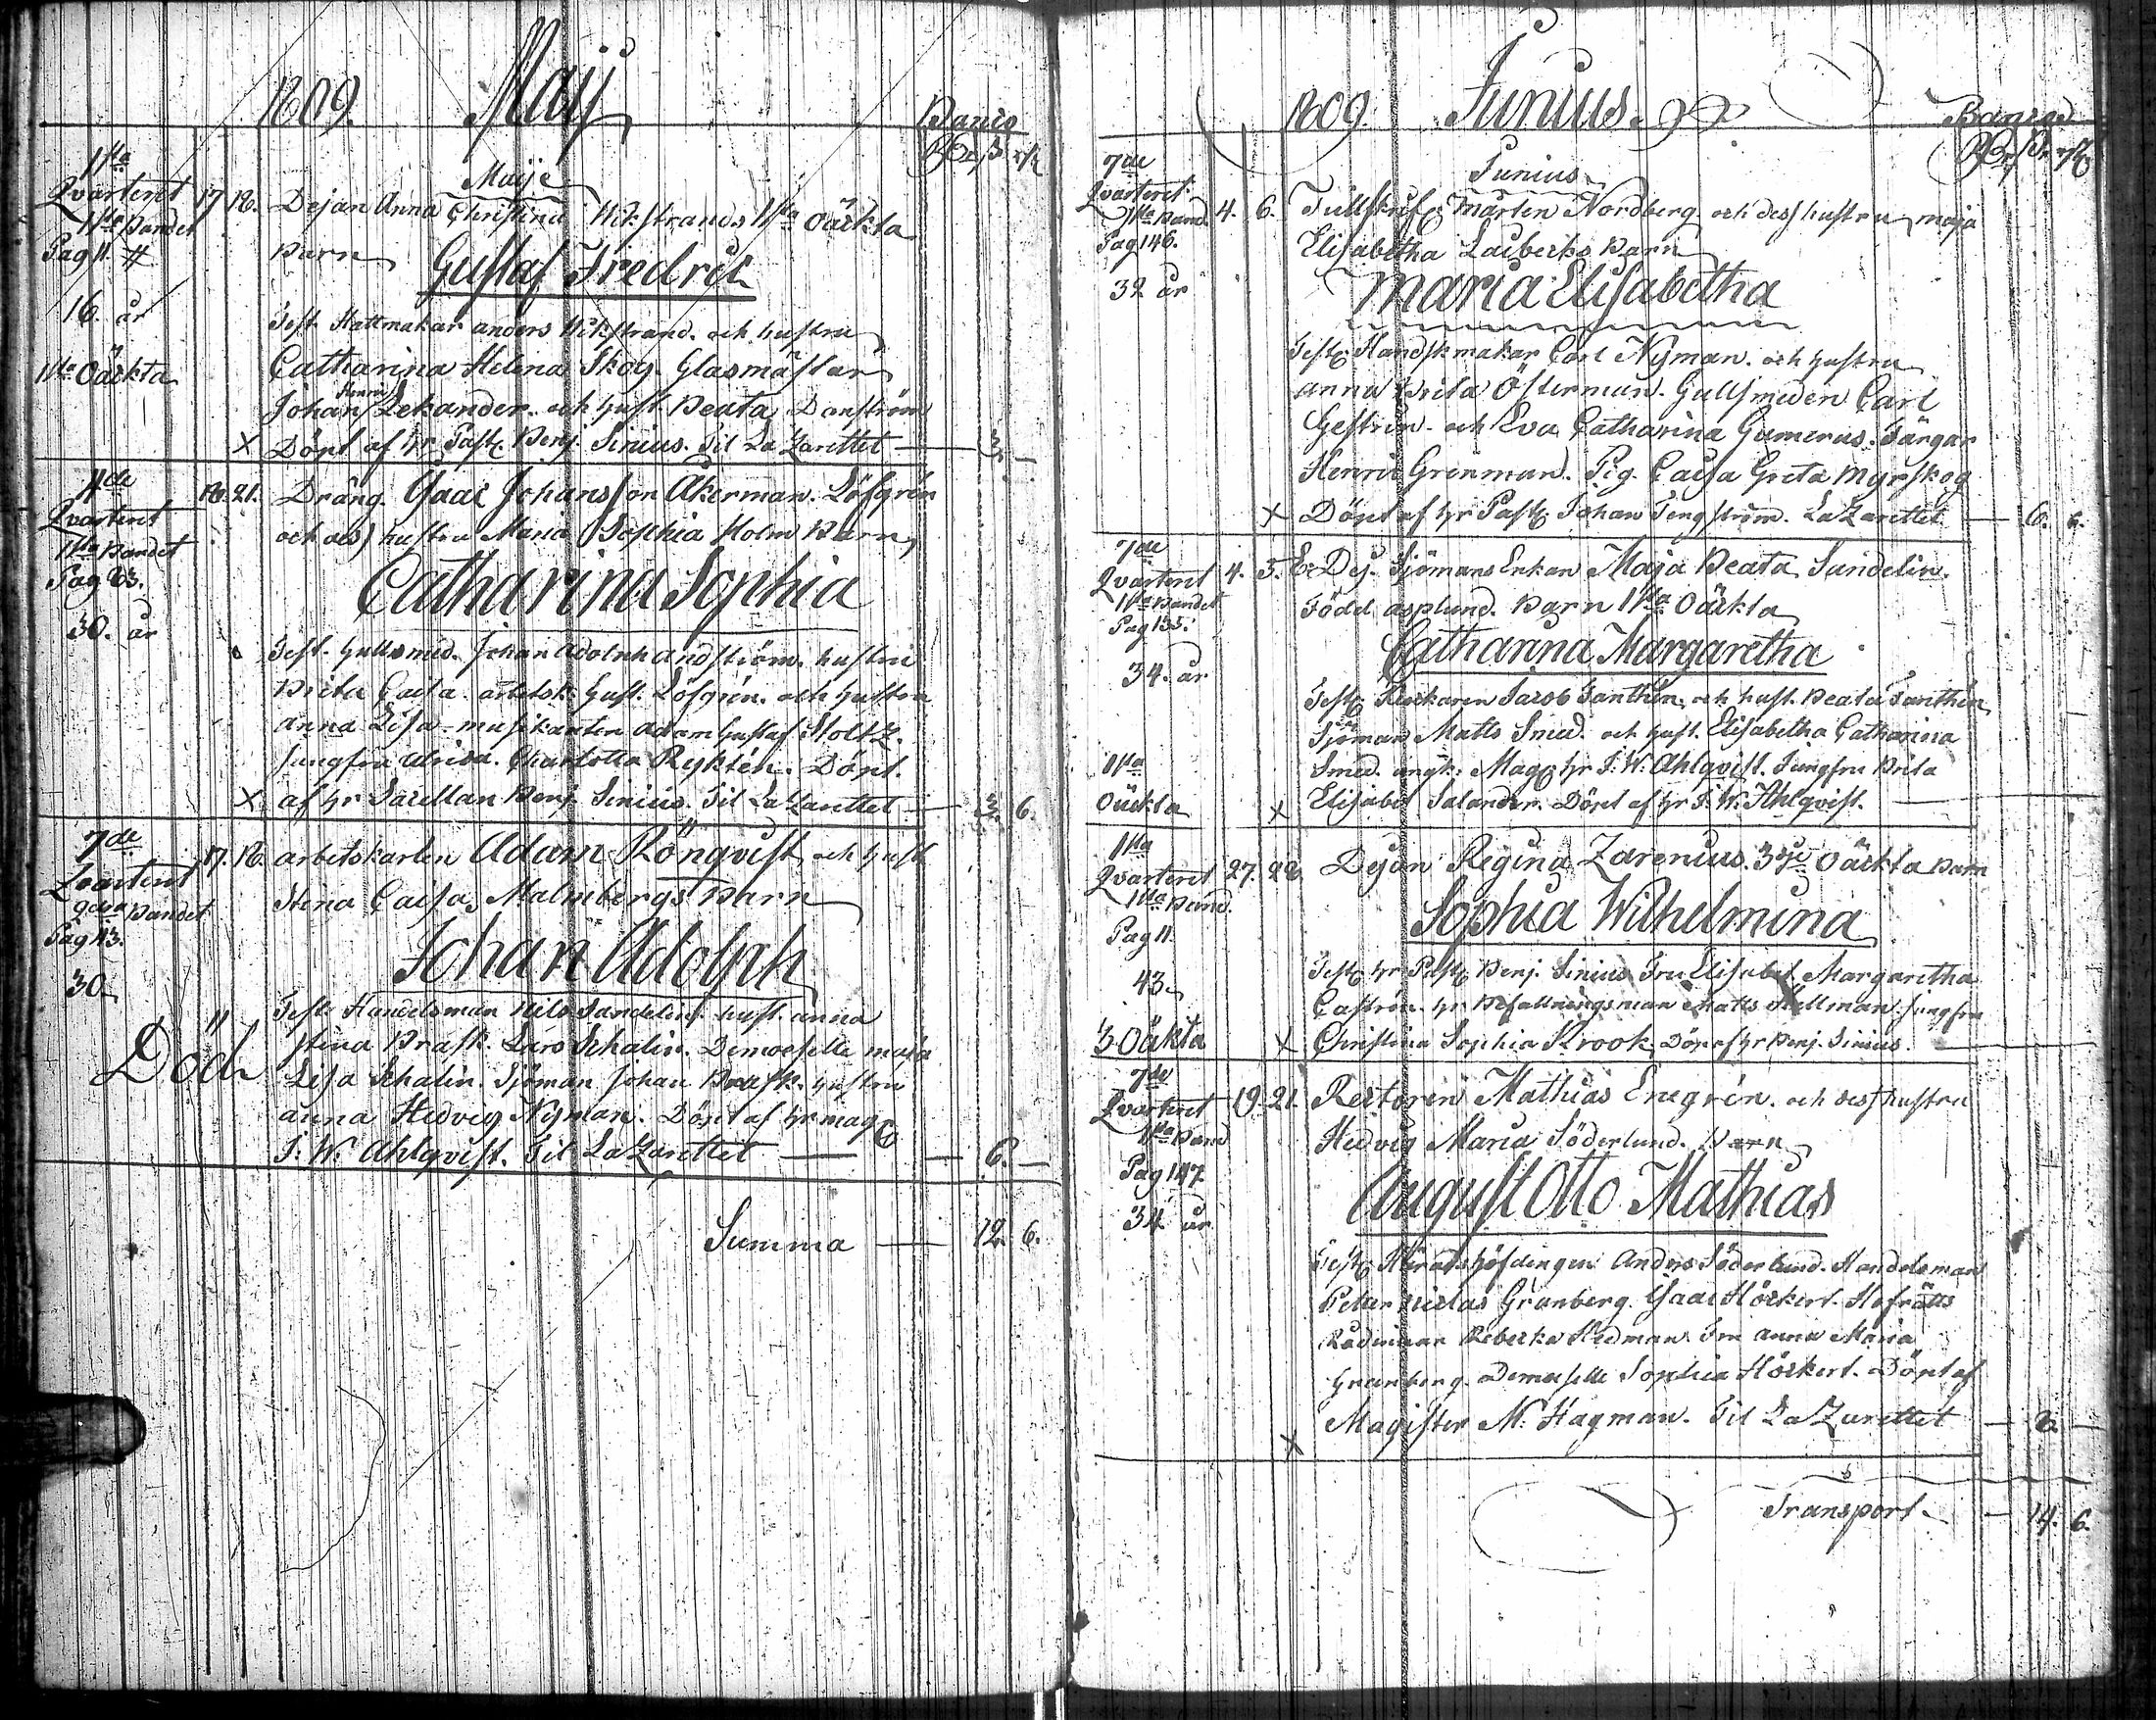 1809. Maij
Banco
Maije
1sta
Qvarteret 17 18. Dejan Anna Christina Wikstrands 1sta Oäckta
1sta Bandet
Pag 11. Barn Gustaf Fredric
16. år Test. Hattmakar anders Wikstrand. och hustru
1sta Oäckta Catharina Helena Skog. Glasmästar
Johan Henric Zekander. och hust. Beata Danström
X Döpt af hr Past. Benj. Sinius. Til LaZarettet — 3. —
4de
Qvarteret 18. 21. Dräng. Isaac Johansson Åkerman. Löfgrén
1sta Bandet och des hustru Maria Sophia Holm Barn
Pag 83. Catharina Sophia
30. år
Test. Gullsmed. Johan Adolph Andström. hustru
Brita Caisa. arbetsk. Gust. Löfgrén. och hustru
anna Lisa. musikanten Adam Gustaf Stoltz.
Jungfru Ulrica. Charlotta Ryktén. Döpt.
X af hr Sacellan Benj. Sinius. Til LaZarettet — 3. 6.
7de
Qvarteret 17. 18. arbetskarlen Adam Rönqvist och hust
2dra Bandet Stina Caisa Malmbergs Barn
Pag 43. Johan Adolph
30
Test. Handelsman Nils Sandelin. hust. anna
Död Stina Brask. Lars Schalin. Demoiselle maja
Lisa Schalin. Sjöman Johan Brask. hustru
anna Hedvig Nyman. Döpt af hr mag
J. W. Ahlqvist. Til LaZarettet — 6. —
Summa — 12. 6.
1809. Junius.
Banco
Junius
7de
Qvarteret 4. 6. Tullskrif. Mårten Nordberg och dess hustru maja
1sta Band.
Pag 146. Elisabetha Lacbecks Barn
32 år Maria Elisabetha
Test. Handskmakar Carl Nyman. och hustru
anna Brita Österman. Gullsmeden Carl
Gestrin. och Eva Catharina Gumerus. Färgar
Henric Grönman. Pig. Caisa Greta Myrskog
X Döpt af hr Past. Johan Tengström. LaZarettet — 6. 6.
7de
Qvarteret 4. 5. E. Dej. Sjömans Enkan Maja Beata Sandelin.
1sta Bandet Född asplund. Barn 1sta Oäckta
Pag 135. Catharina Margaretha
34. år
Test. Klockaren Jacob Fanthén och hust. Beata Fanthén
Sjöman Matts Smed. och hust. Elisabetha Catharina
1sta Smed. Mag. hr J. W. Ahlqvist. Jungfru Brita
Oäckta X Elisabet Salander. Döpt af hr J. W. Ahlqvist. —
1sta
Qvarteret 27. 28. Dejan Regina Zarenius. 3dje Oäckta Barn
1sta Band.
Pag 11. Sophia Wilhelmina
43. Test. hr Past. Benj. Sinius Fru Elisabet Margaretha
Castrén. hr Befallningsman Matts Hellman. jungfru
3 Oäkta X Christina Sophia Krook Döp af hr Benj. Sinius. —
7de
Qvarteret 19. 21. Rectoren Mathias Enegrén. och dess hustru
1sta Band Hedvig Maria Söderlund. Barn
Pag 147. August Otto Mathias
34 år
Test. Häradshöfdingen Anders Söderlund. Handelsman
Petter Niclas Granberg. Isaac Höckert. Hofrätts
Rådinnan Rebecka Hedman. Fru anna Maria
Granberg. Demoiselle Sophia Höckert. Döpt af
Magister M. Hagman. Til LaZarettet — 8. —
X
Transport — 14. 6.